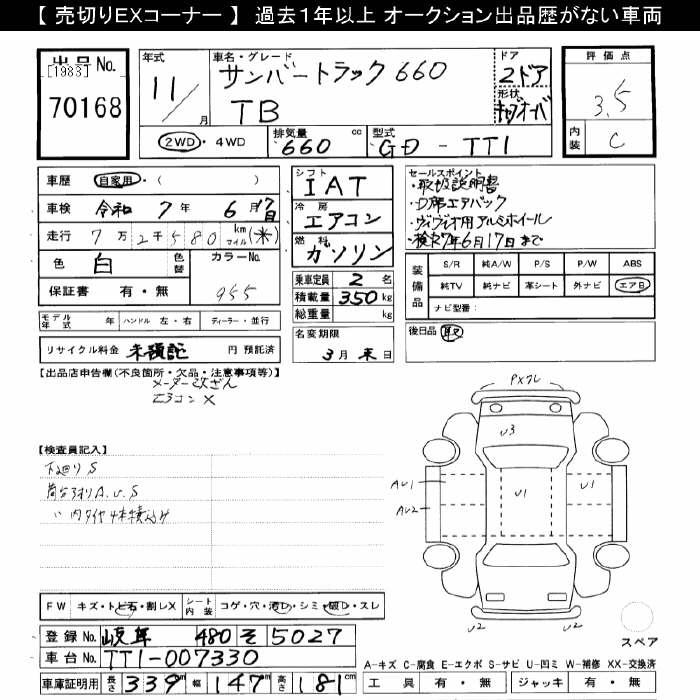 【 売切りEXコーナー 】 過去1年以上 オークション出品歴がない車両
出品 No.
[1983]
70168
年式
11/
月
車名・グレード
サンバートラック 660
TB
ドア
2ドア
形状
評価点
3.5
内装
C
2WD・4WD
排気量 660 cc
型式 GD - TT1
車歴 自家用・( )
車検 令和 7年 6月 17日
走行 7万2千580 km マイル (*)
色 白 色替
カラーNo. 955
保証書 有・無
シフト
IAT
冷房
エアコン
燃料
ガソリン
乗車定員 2 名
積載量 350 kg
総重量 kg
セールスポイント
・取扱説明書
・D席エアバック
・ヴィヴィオ用アルミホイール
・検R7年6月17日まで
装備品
S/R 純A/W P/S P/W ABS
純TV 純ナビ 革シート 外ナビ エアB
ナビ型番：
モデル年式 年 ハンドル 左・右 ディーラー・並行
リサイクル料金 未預託 円 預託済
名変期限
3月 末日
後日品 取
【出品店申告欄(不良箇所・欠品・注意事項等)】
メーター改ざん
エアコン ×
【検査員記入】
下廻り S
荷台廻り A.U.S
〃 内タイヤ4本積込み
PX ワレ
U3
AU1
AU2
U1
U1
U2
U2
スペア
FW キズ・トビ石・割レX シート内装 コゲ・穴・汚レ・シミ・破レ・スレ
登録No. 岐阜 480 そ 5027
車台No. TT1-007330
車庫証明用 長さ 339 幅 147 高さ 181 cm
A-キズ C-腐食 E-エクボ S-サビ U-凹ミ W-補修 XX-交換済
工具 有・無 ジャッキ 有・無